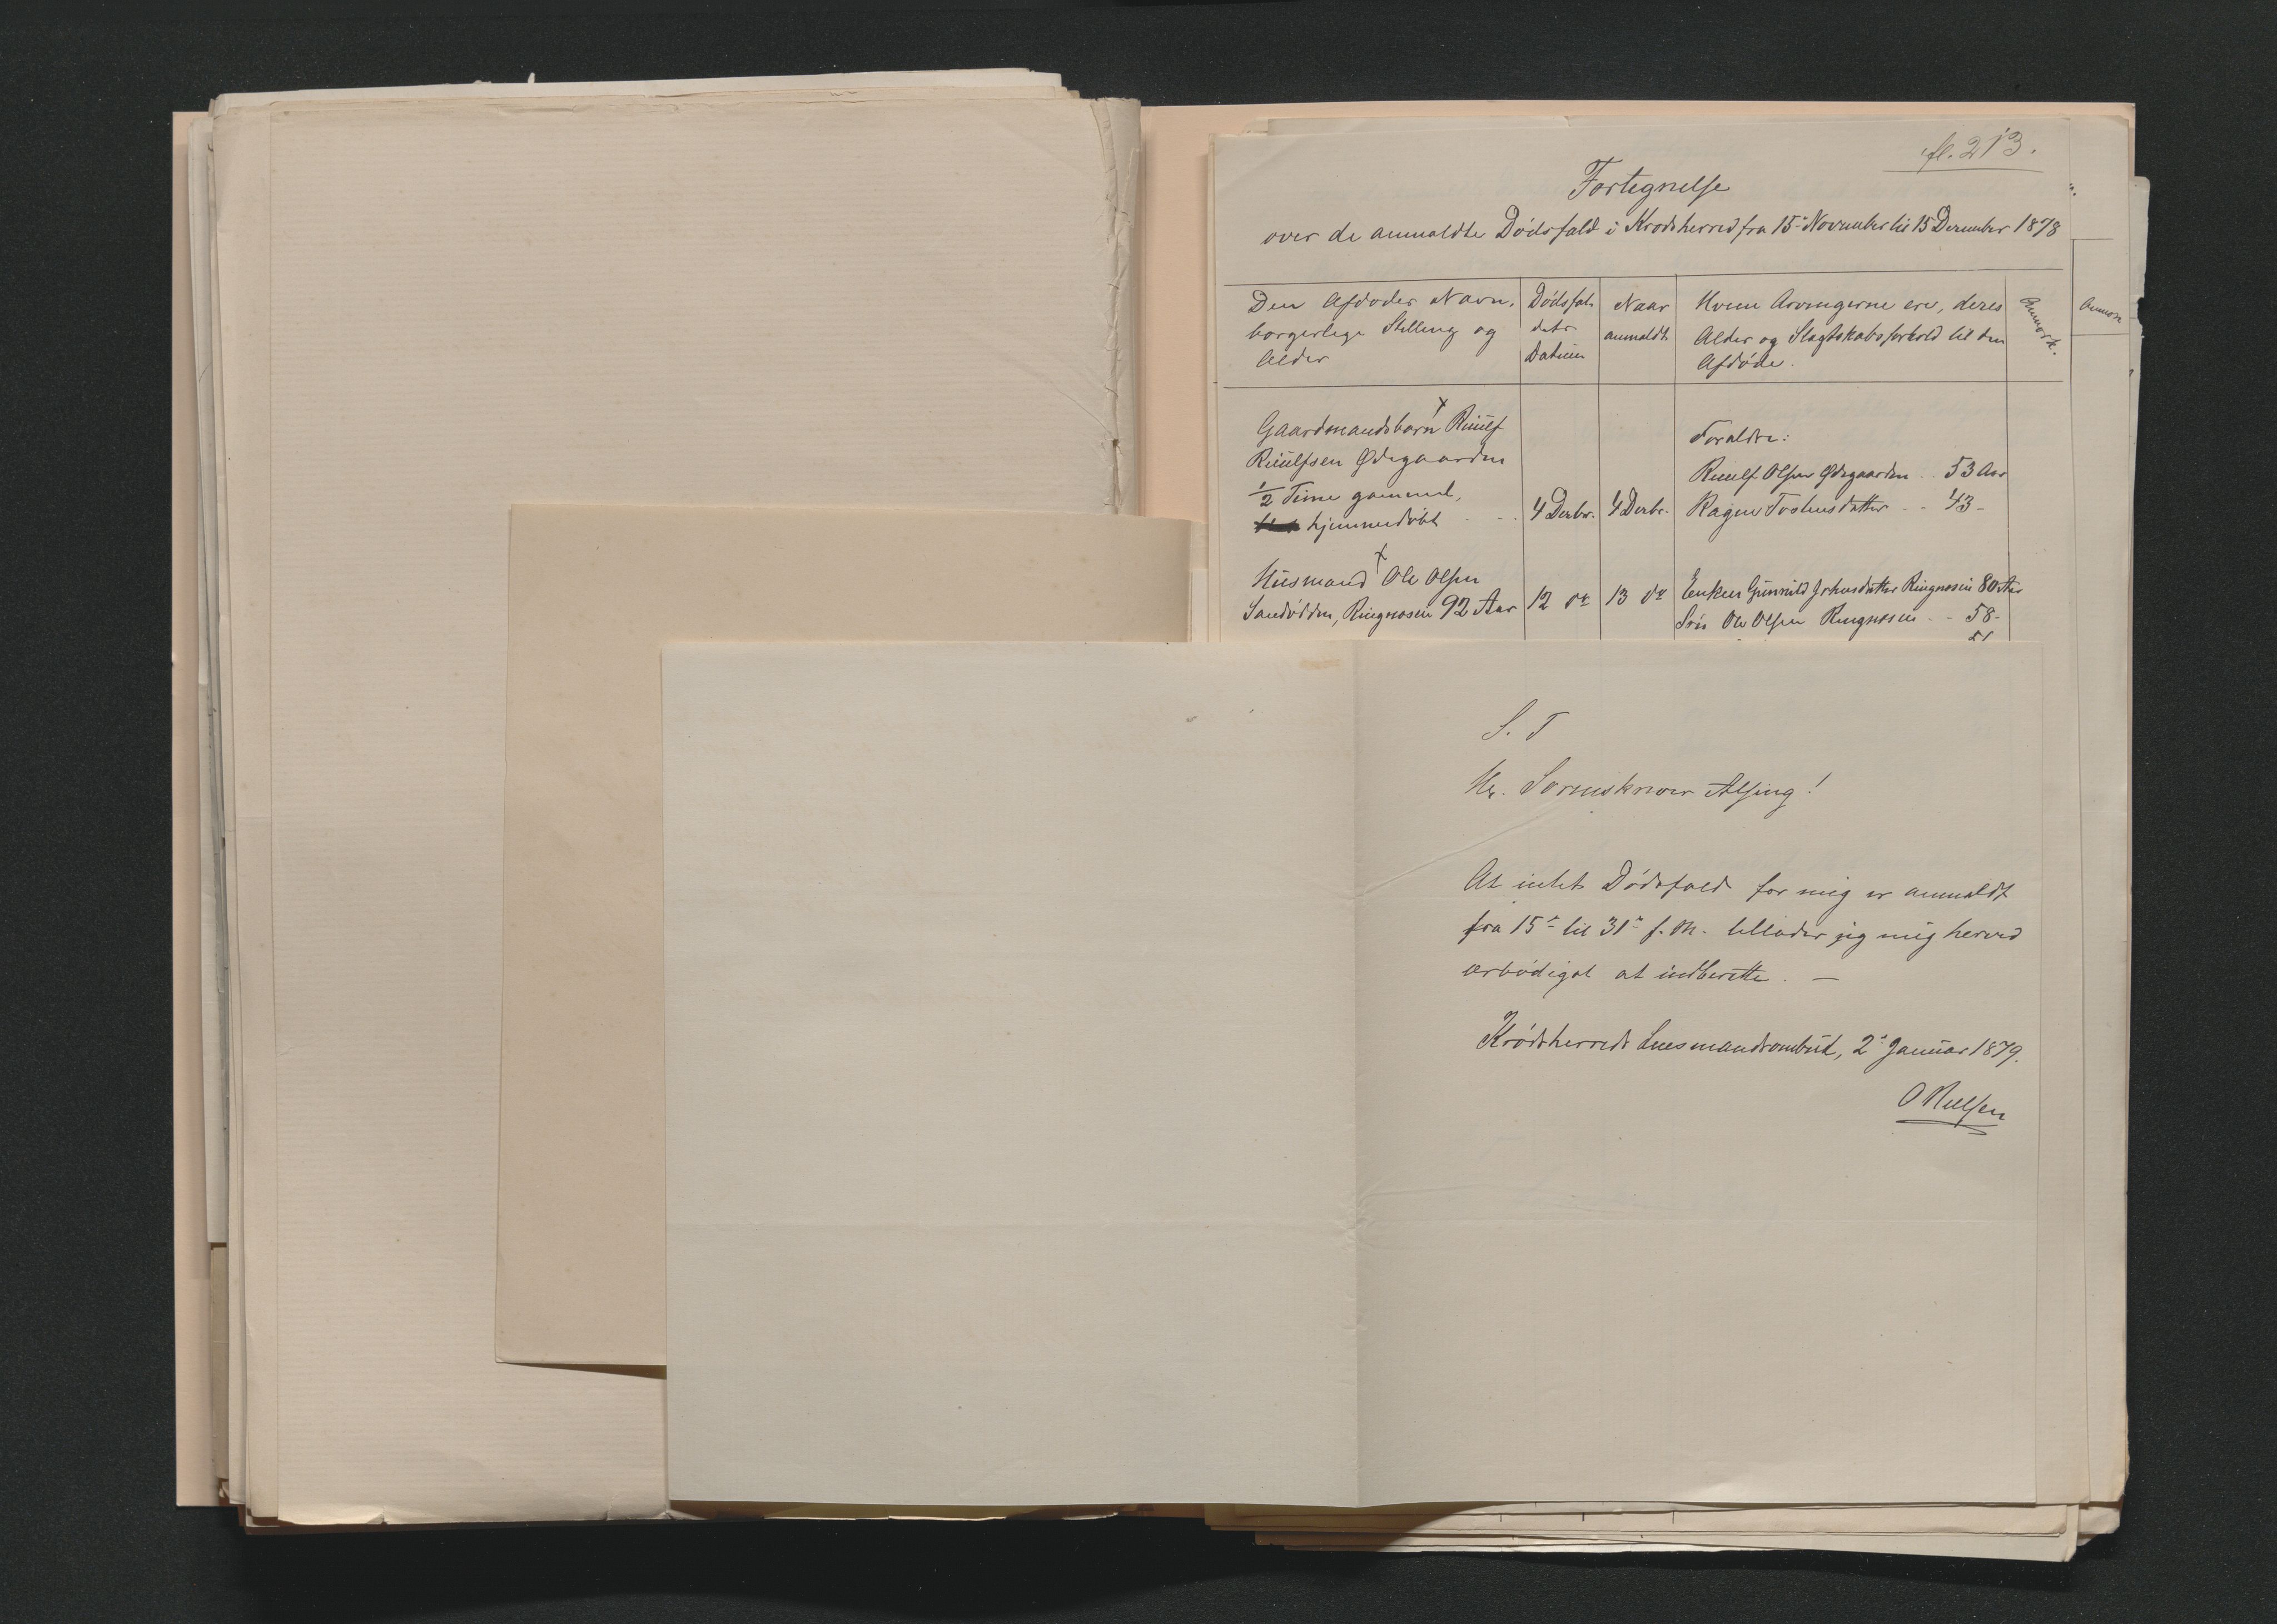 fl. 213.
Fortegnelse
over de anmeldte Dødsfald i Krødsherred fra 15de November til 15 December 1878
Den Afdødes Navn,
borgerlige Stilling og
Alder
Dødsfal-
dets
Datum
Naar
anmeldt
Hvem Arvingerne ere, deres
Alder og Slægtskabsforhold til den
Afdøde.
Anmærk.
Anmærk
Gaardmandsbarn Ruulf
Ruulfsen Ødegaarden
1/2 Time gammel,
hjemmedøbt
4 Decbr.
4 Decbr.
Forældre:
Ruulf Olsen Ødegaarden .. 53 Aar
Ragne Tostensdatter .. 43 -
Husmand Ole Olsen
Sandødden, Ringnæseie 92 Aar
12 do
13 do
Enken Gunnild Johnsdatter Ringnæseie 80 Aar
Søn Ole Olsen Ringnæseie - - 58 -
51
S. T
Hr. Sorenskriver Alsing!
At intet Dødsfald for mig er anmeldt
fra 15de til 31te f. M. tillader jeg mig herved
ærbødigst at indberette. —
Krødsherreds Lensmandsombud, 2den Januar 1879.
O Ruulfsen